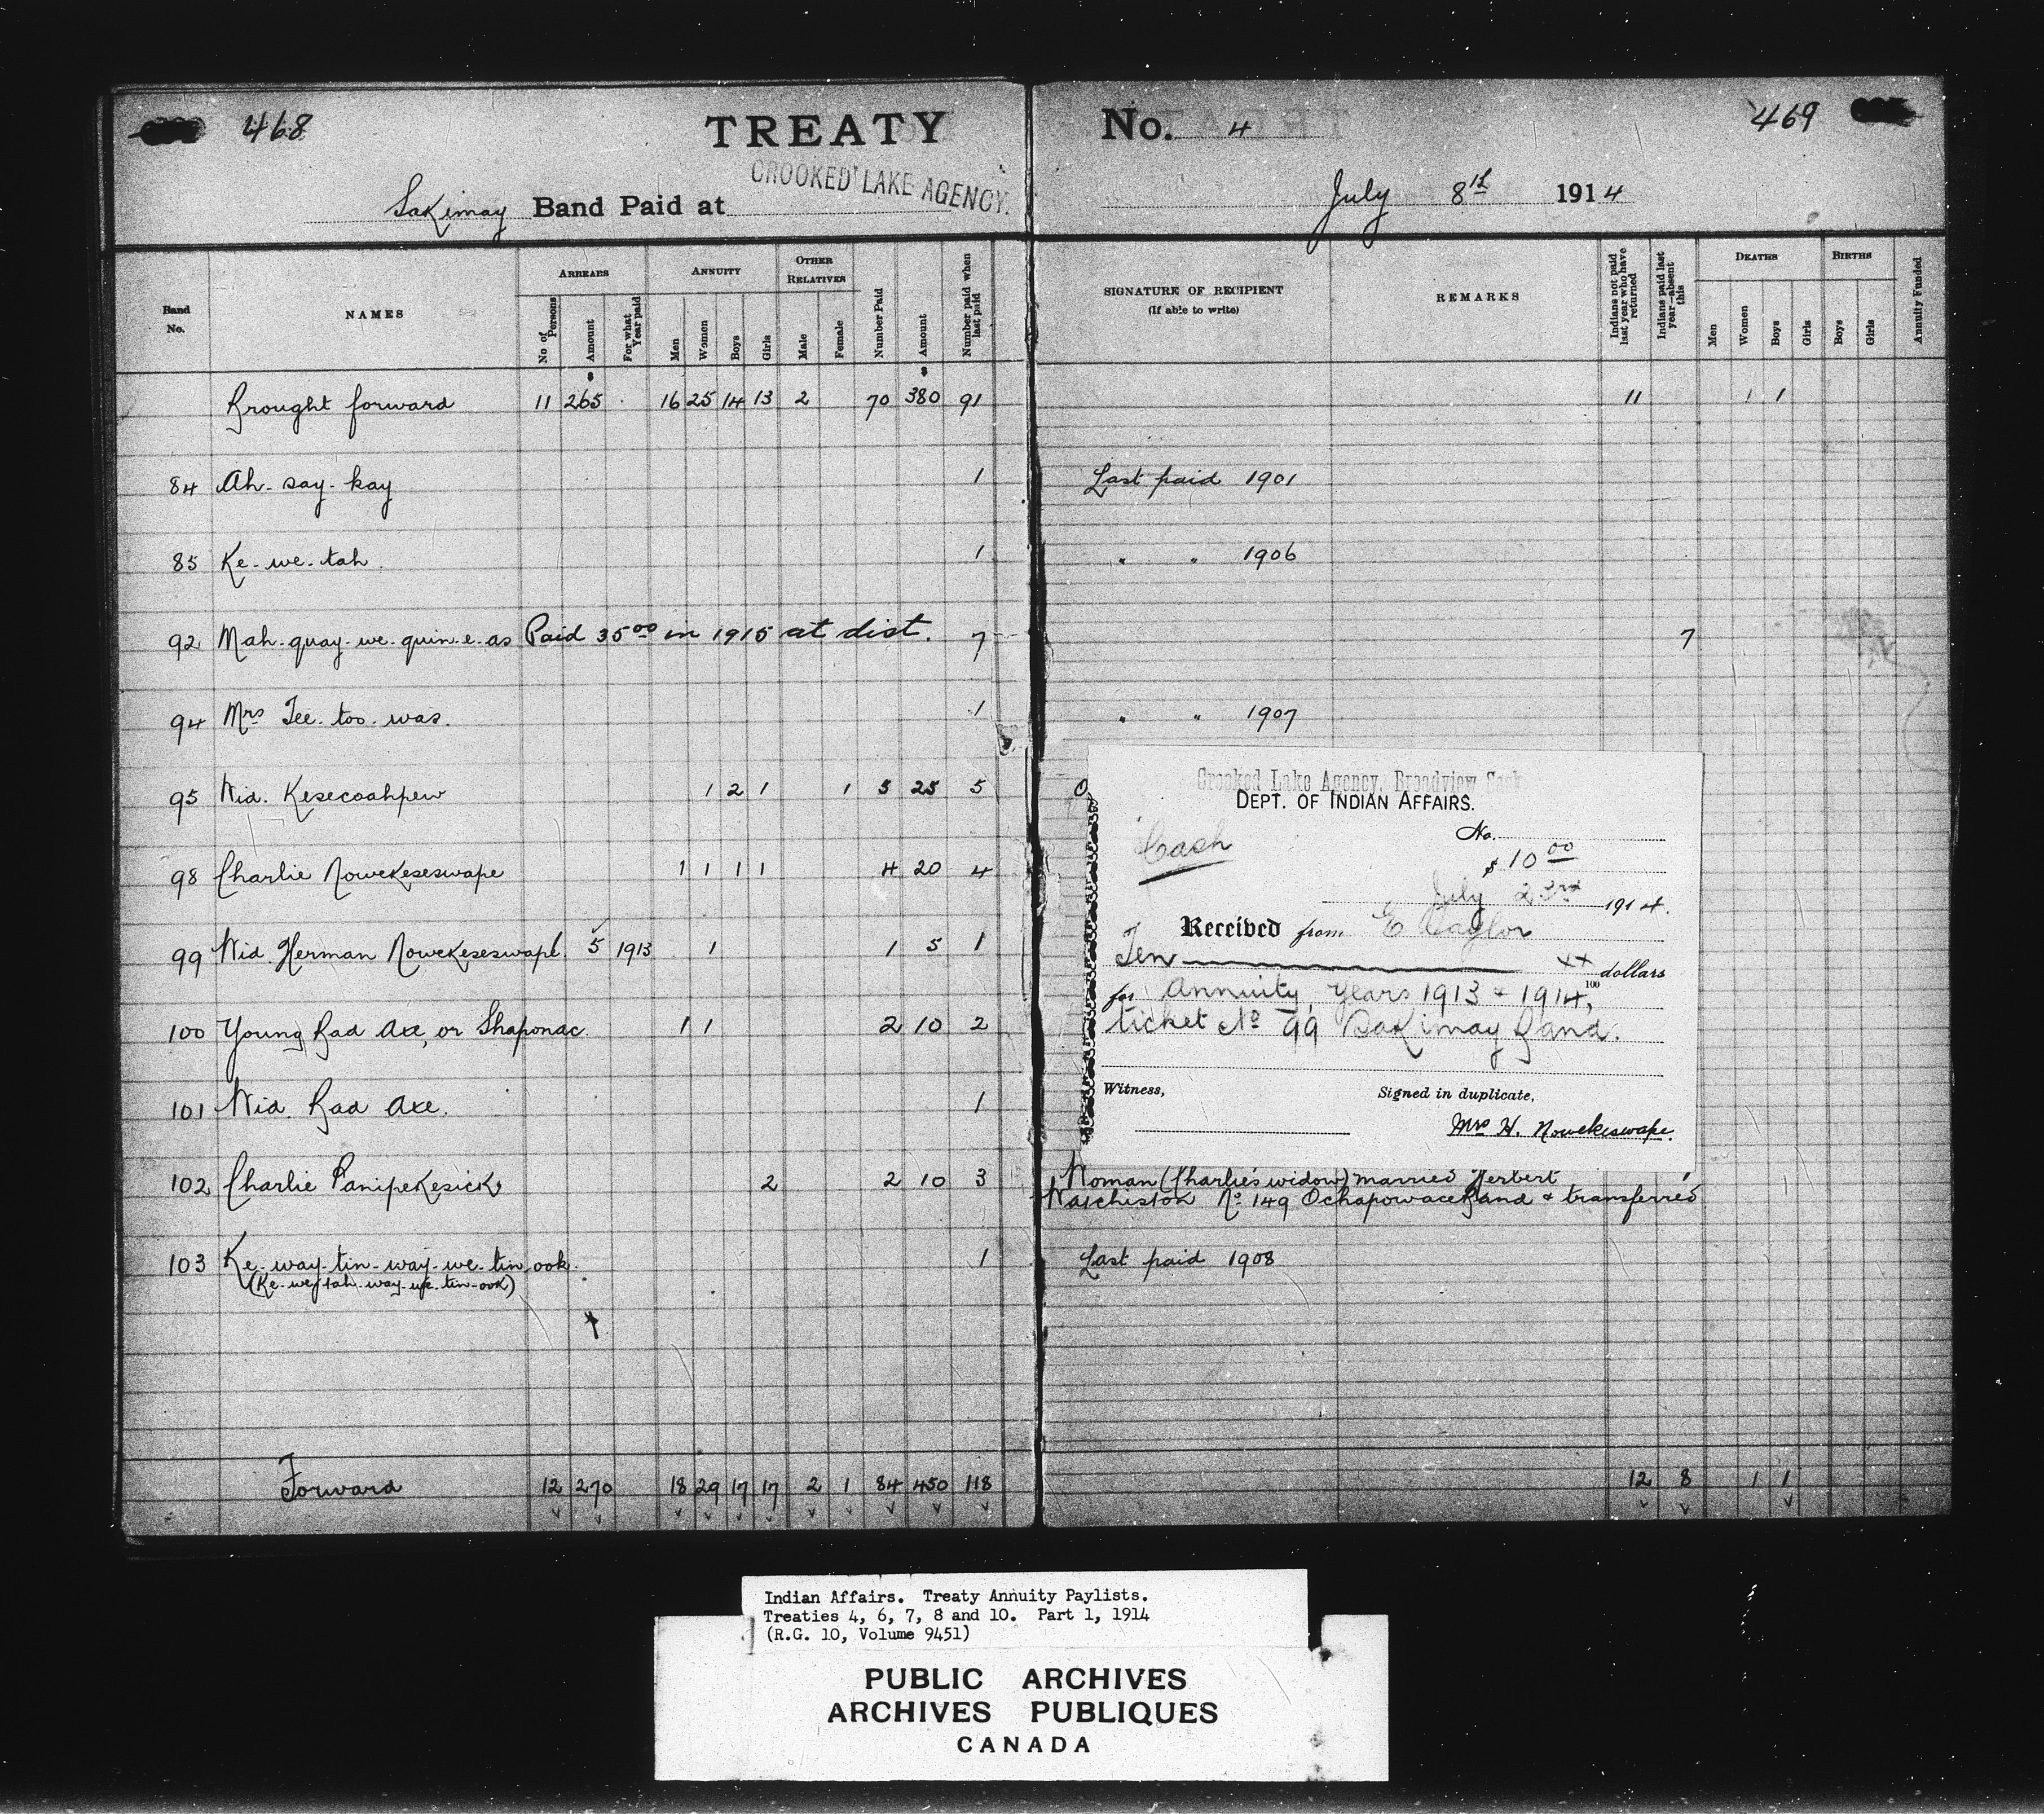 468
TREATY
No. 4
469
CROOKED LAKE AGENCY.
Sakimay Band Paid at
July 8th 1914
Band No.
NAMES
ARREARS
No of Persons
Amount
For what Year paid
ANNUITY
Men
Women
Boys
Girls
OTHER RELATIVES
Male
Female
Number Paid
Amount
Number paid when last paid
SIGNATURE OF RECIPIENT
(If able to write)
REMARKS
Indians not paid last year who have returned
Indians paid last year—absent this
DEATHS
Men
Women
Boys
Girls
BIRTHS
Boys
Girls
Annuity Funded
Brought forward 11 265 16 25 14 13 2 70 380 91 11 1 1
84 Ah-say-kay 1 Last paid 1901
85 Ke-we-tah 1 " " 1906
92 Mah-quay-we-quin-e-as Paid 35 00 in 1915 at dist. 7 7
94 Mrs Tee-too-was. 1 " " 1907
95 Wid. Kesecoahpew 1 2 1 1 5 25 5
98 Charlie Nowekeseswape 1 1 1 1 4 20 4
99 Wid. Herman Nowekeseswape. 5 1913 1 1 5 1
100 Young Bad Axe, or Shaponac. 1 1 2 10 2
101 Wid. Bad Axe. 1
102 Charlie Panipekesick 2 2 10 3 Woman (Charlie's widow) married Herbert
Watchiston No 149 Ochapowace Band & transferred
103 Ke-way-tin-way-we-tin-ook. 1 Last paid 1908
(Ke-we-tah-way-we-tin-ook)
Forward 12 270 18 29 17 17 2 1 84 450 118 12 8 1 1
Crooked Lake Agency, Broadview Sask
DEPT. OF INDIAN AFFAIRS.
Cash
No.
$ 10 00
July 23rd 1914.
Received from E Taylor
Ten xx dollars
100
for Annuity, years 1913 & 1914,
ticket No 99 Sakimay Band.
Witness,
Signed in duplicate,
Mrs H. Nowekeswape.
Indian Affairs. Treaty Annuity Paylists.
Treaties 4, 6, 7, 8 and 10. Part 1, 1914
(R.G. 10, Volume 9451)
PUBLIC ARCHIVES
ARCHIVES PUBLIQUES
CANADA